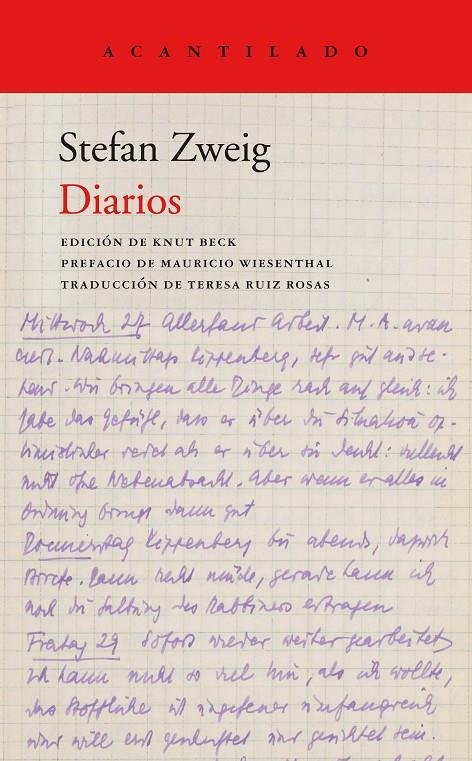 ACANTILADO
Stefan Zweig
Diarios
EDICIÓN DE KNUT BECK
PREFACIO DE MAURICIO WIESENTHAL
TRADUCCIÓN DE TERESA RUIZ ROSAS
Mittwoch 27 Allerhand Arbeit. M. A. avan
ciert. Nachmittags Kippenberg, sehr gut
Wir bringen alle Dinge rasch auf gleich: ich
habe das Gefühl, dass er über die Situation op-
timistischer redet als er über sie denkt: vielleicht
nicht ohne Nebenabsicht. Aber wenn er alles in
Ordnung bringt dann gut
Donnerstag Kippenberg bis abends, dazwisch
Briefe. Dann recht müde, gerade kann ich
noch die des Rabbiners ertragen
Freitag 29 Sofort wieder weiter gearbeitet,
ich kann nicht so viel hin, als ich wollte,
das Stoffliche ist ungeheuer umfangreich
und will erst und gesichtet sein.